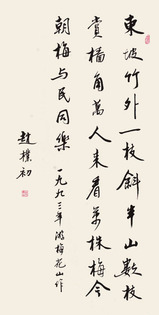 東坡竹外一枝斜半山數枝
賞墻角萬人来看萬株梅今
朝梅与民同樂 一九九三年游梅花山作
趙樸初